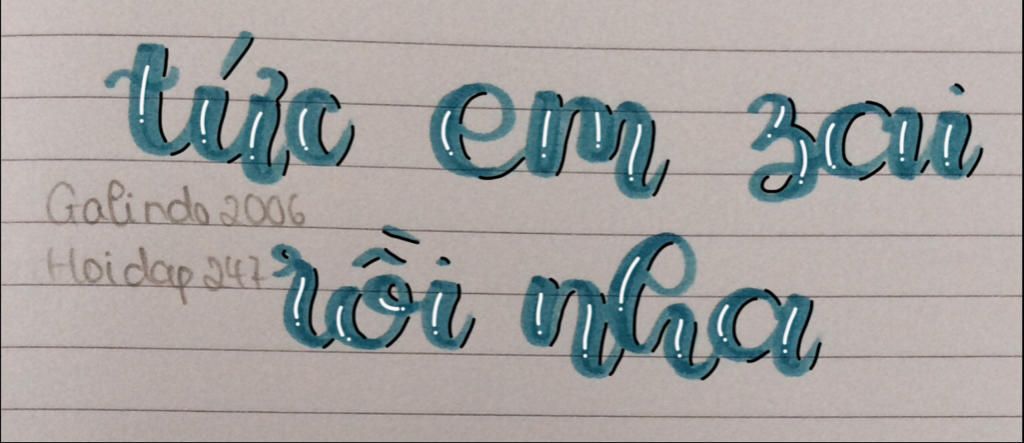 tức em zai
Galindo 2006
Hoidap 247
rồi nha